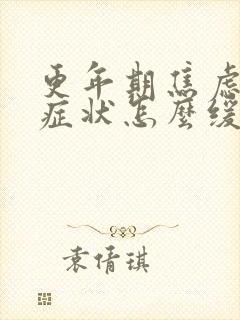 更年期焦虑
症状怎麽缓
袁倩琪